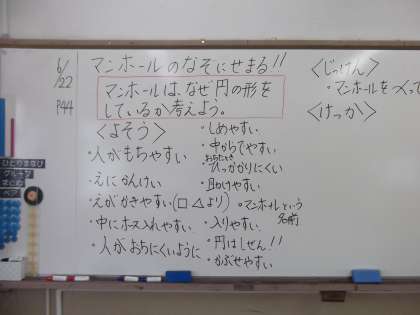 6/22
P44
マンホールのなぞにせまる!!
マンホールは、なぜ円の形を
しているか考えよう。
〈よそう〉
・人がもちやすい
・えにかんけい
・えがかきやすい(□△より)
・中にホース入れやすい
・人がおちにくいように
・しめやすい
・中からでやすい
・ひっかかりにくい
・助けやすい
・マンホールという
名前
・入りやすい
・円はしぜん!!
・かぶせやすい
〈じっけん〉
・マンホールをつくって
〈けっか〉
ひとりまなび
グループ
まとめ
ペア